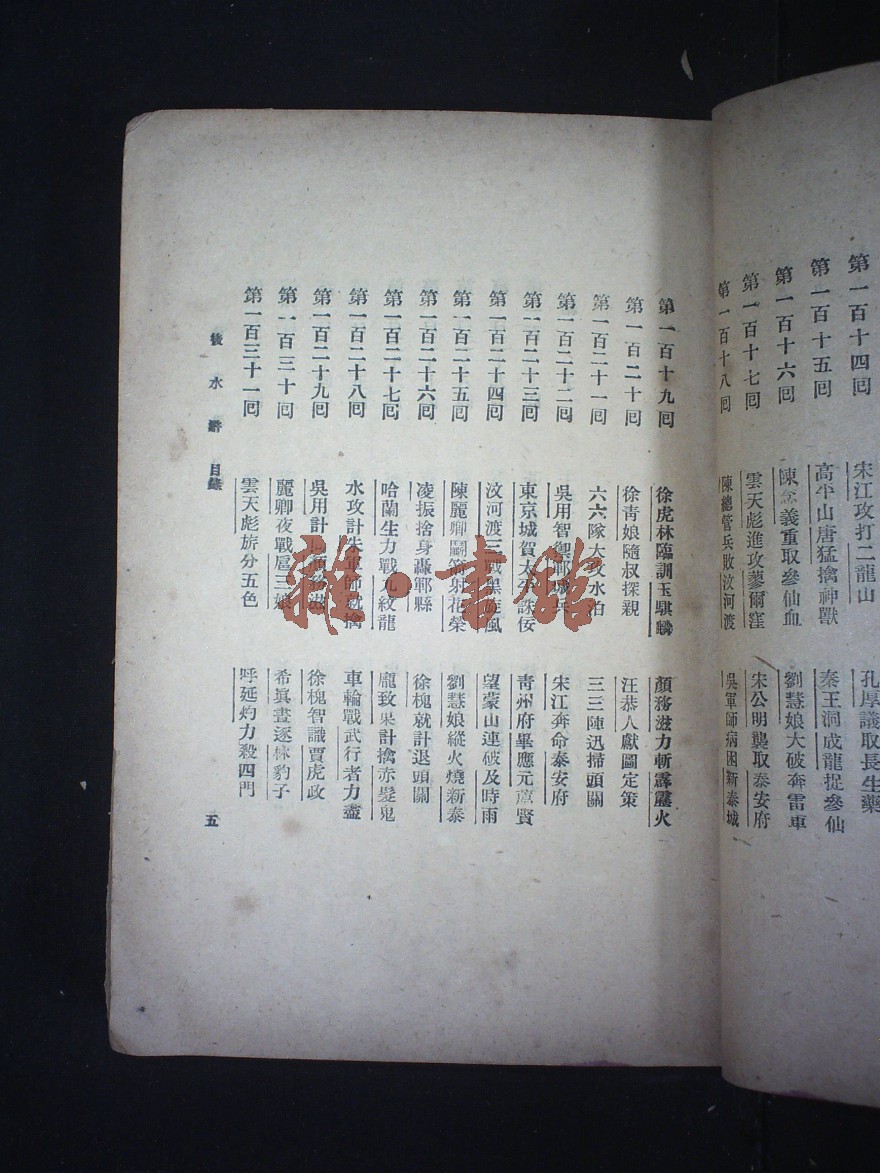 第一百十四囘 宋江攻打二龍山 孔厚議取長生藥
第一百十五囘 高平山唐猛擒神獸 秦王洞成龍捉參仙
第一百十六囘 陳念義重取參仙血 劉慧娘大破奔雷車
第一百十七囘 雲天彪進攻蓼爾窪 宋公明襲取泰安府
第一百十八囘 陳總管兵敗汶河渡 吳軍師病困新泰城
第一百十九囘 徐虎林臨訓玉騏麟 顏務滋力斬霹靂火
第一百二十囘 徐青娘隨叔探親 汪恭人獻圖定策
第一百二十一囘 六六隊大攻水泊 三三陣迅掃頭關
第一百二十二囘 吳用智禦郓城兵 宋江奔命泰安府
第一百二十三囘 東京城賀太平誅佞 青州府畢應元薦賢
第一百二十四囘 汶河渡三戰黑旋風 望蒙山連破及時雨
第一百二十五囘 陳麗卿鬭箭射花榮 劉慧娘縱火燒新泰
第一百二十六囘 凌振捨身轟鄆縣 徐槐就計退頭關
第一百二十七囘 哈蘭生力戰九紋龍 龐致果計擒赤髮鬼
第一百二十八囘 水攻計朱軍師就擒 車輪戰武行者力盡
第一百二十九囘 吳用計 徐槐智識賈虎政
第一百三十囘 麗卿夜戰扈三娘 希眞晝逐林豹子
第一百三十一囘 雲天彪旂分五色 呼延灼力殺四門
後水滸 目錄
五
雜·書館